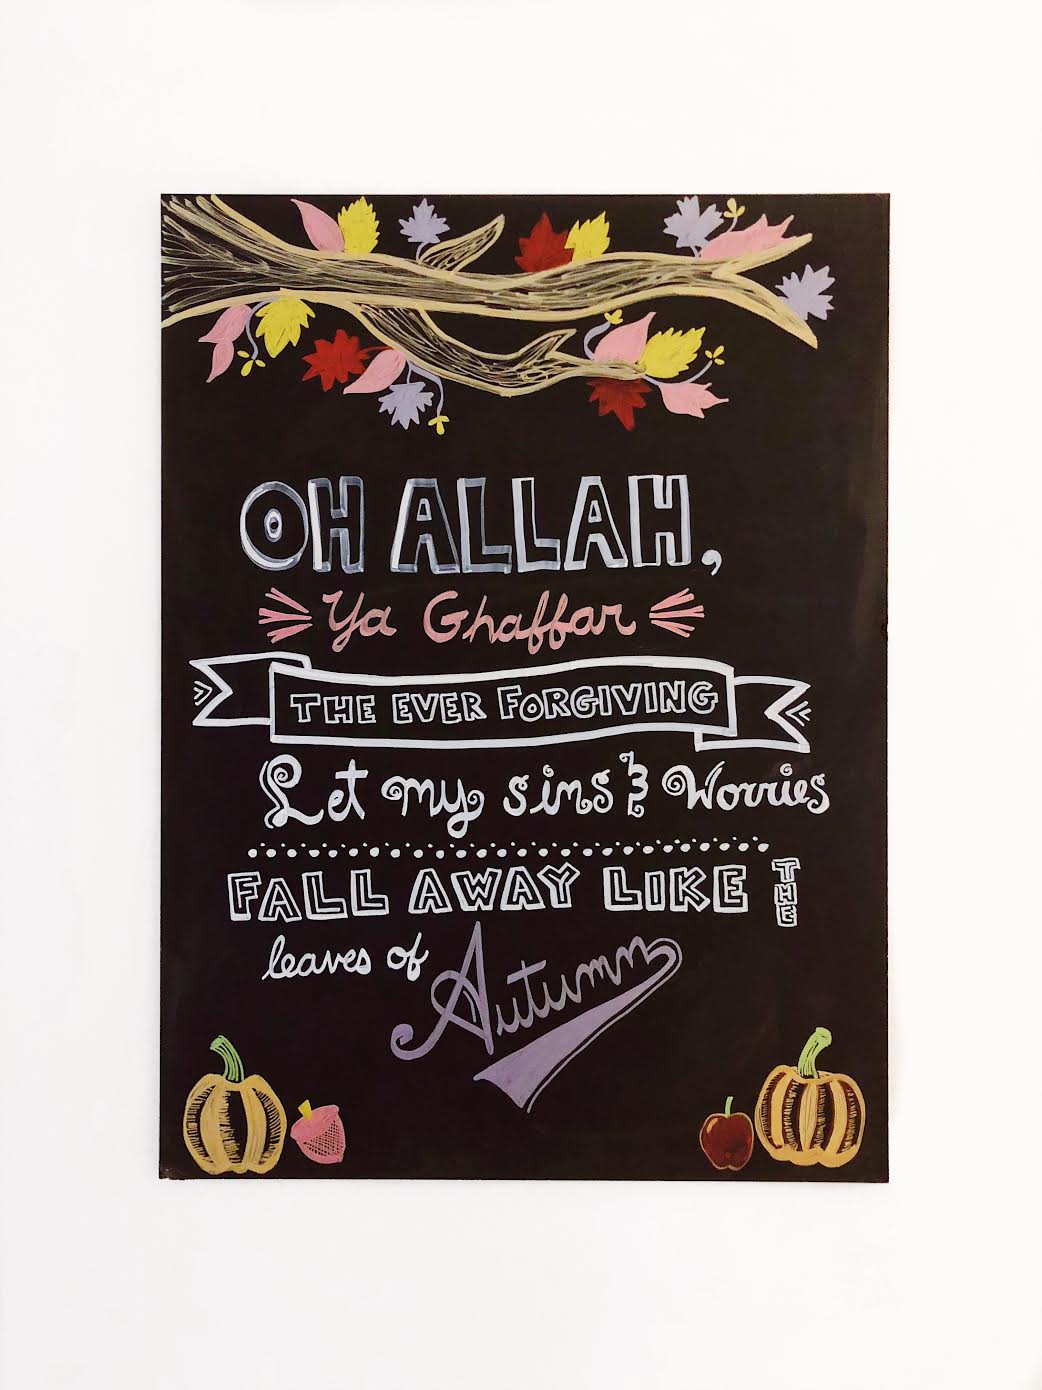 OH ALLAH,
Ya Ghaffar
THE EVER FORGIVING
Let my sins & Worries
FALL AWAY LIKE THE
leaves of Autumn